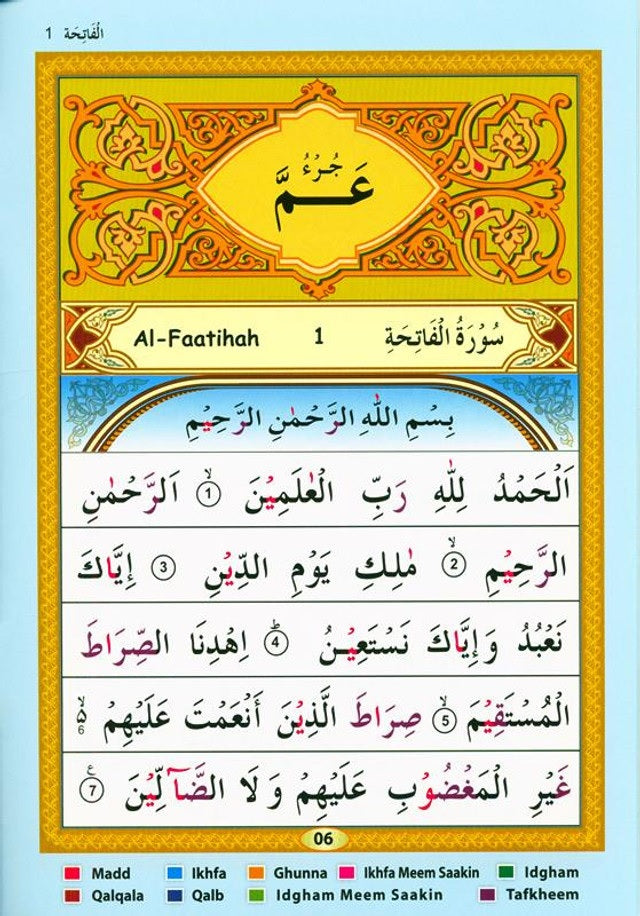 الْفَاتِحَة 1
جُزْءُ
عَمَّ
Al-Faatihah 1 سُوْرَةُ الْفَاتِحَةِ
بِسْمِ اللّٰهِ الرَّحْمٰنِ الرَّحِيْمِ
اَلْحَمْدُ لِلّٰهِ رَبِّ الْعٰلَمِيْنَ ۙ 1 اَلرَّحْمٰنِ
الرَّحِيْمِ ۙ 2 مٰلِكِ يَوْمِ الدِّيْنِ 3 إِيَّاكَ
نَعْبُدُ وَإِيَّاكَ نَسْتَعِيْنُ ؕ 4 اِهْدِنَا الصِّرَاطَ
الْمُسْتَقِيْمَ ۙ 5 صِرَاطَ الَّذِيْنَ أَنْعَمْتَ عَلَيْهِمْ ۙ ۵ 6
غَيْرِ الْمَغْضُوْبِ عَلَيْهِمْ وَلَا الضَّآلِّيْنَ ع 7
06
Madd Ikhfa Ghunna Ikhfa Meem Saakin Idgham
Qalqala Qalb Idgham Meem Saakin Tafkheem